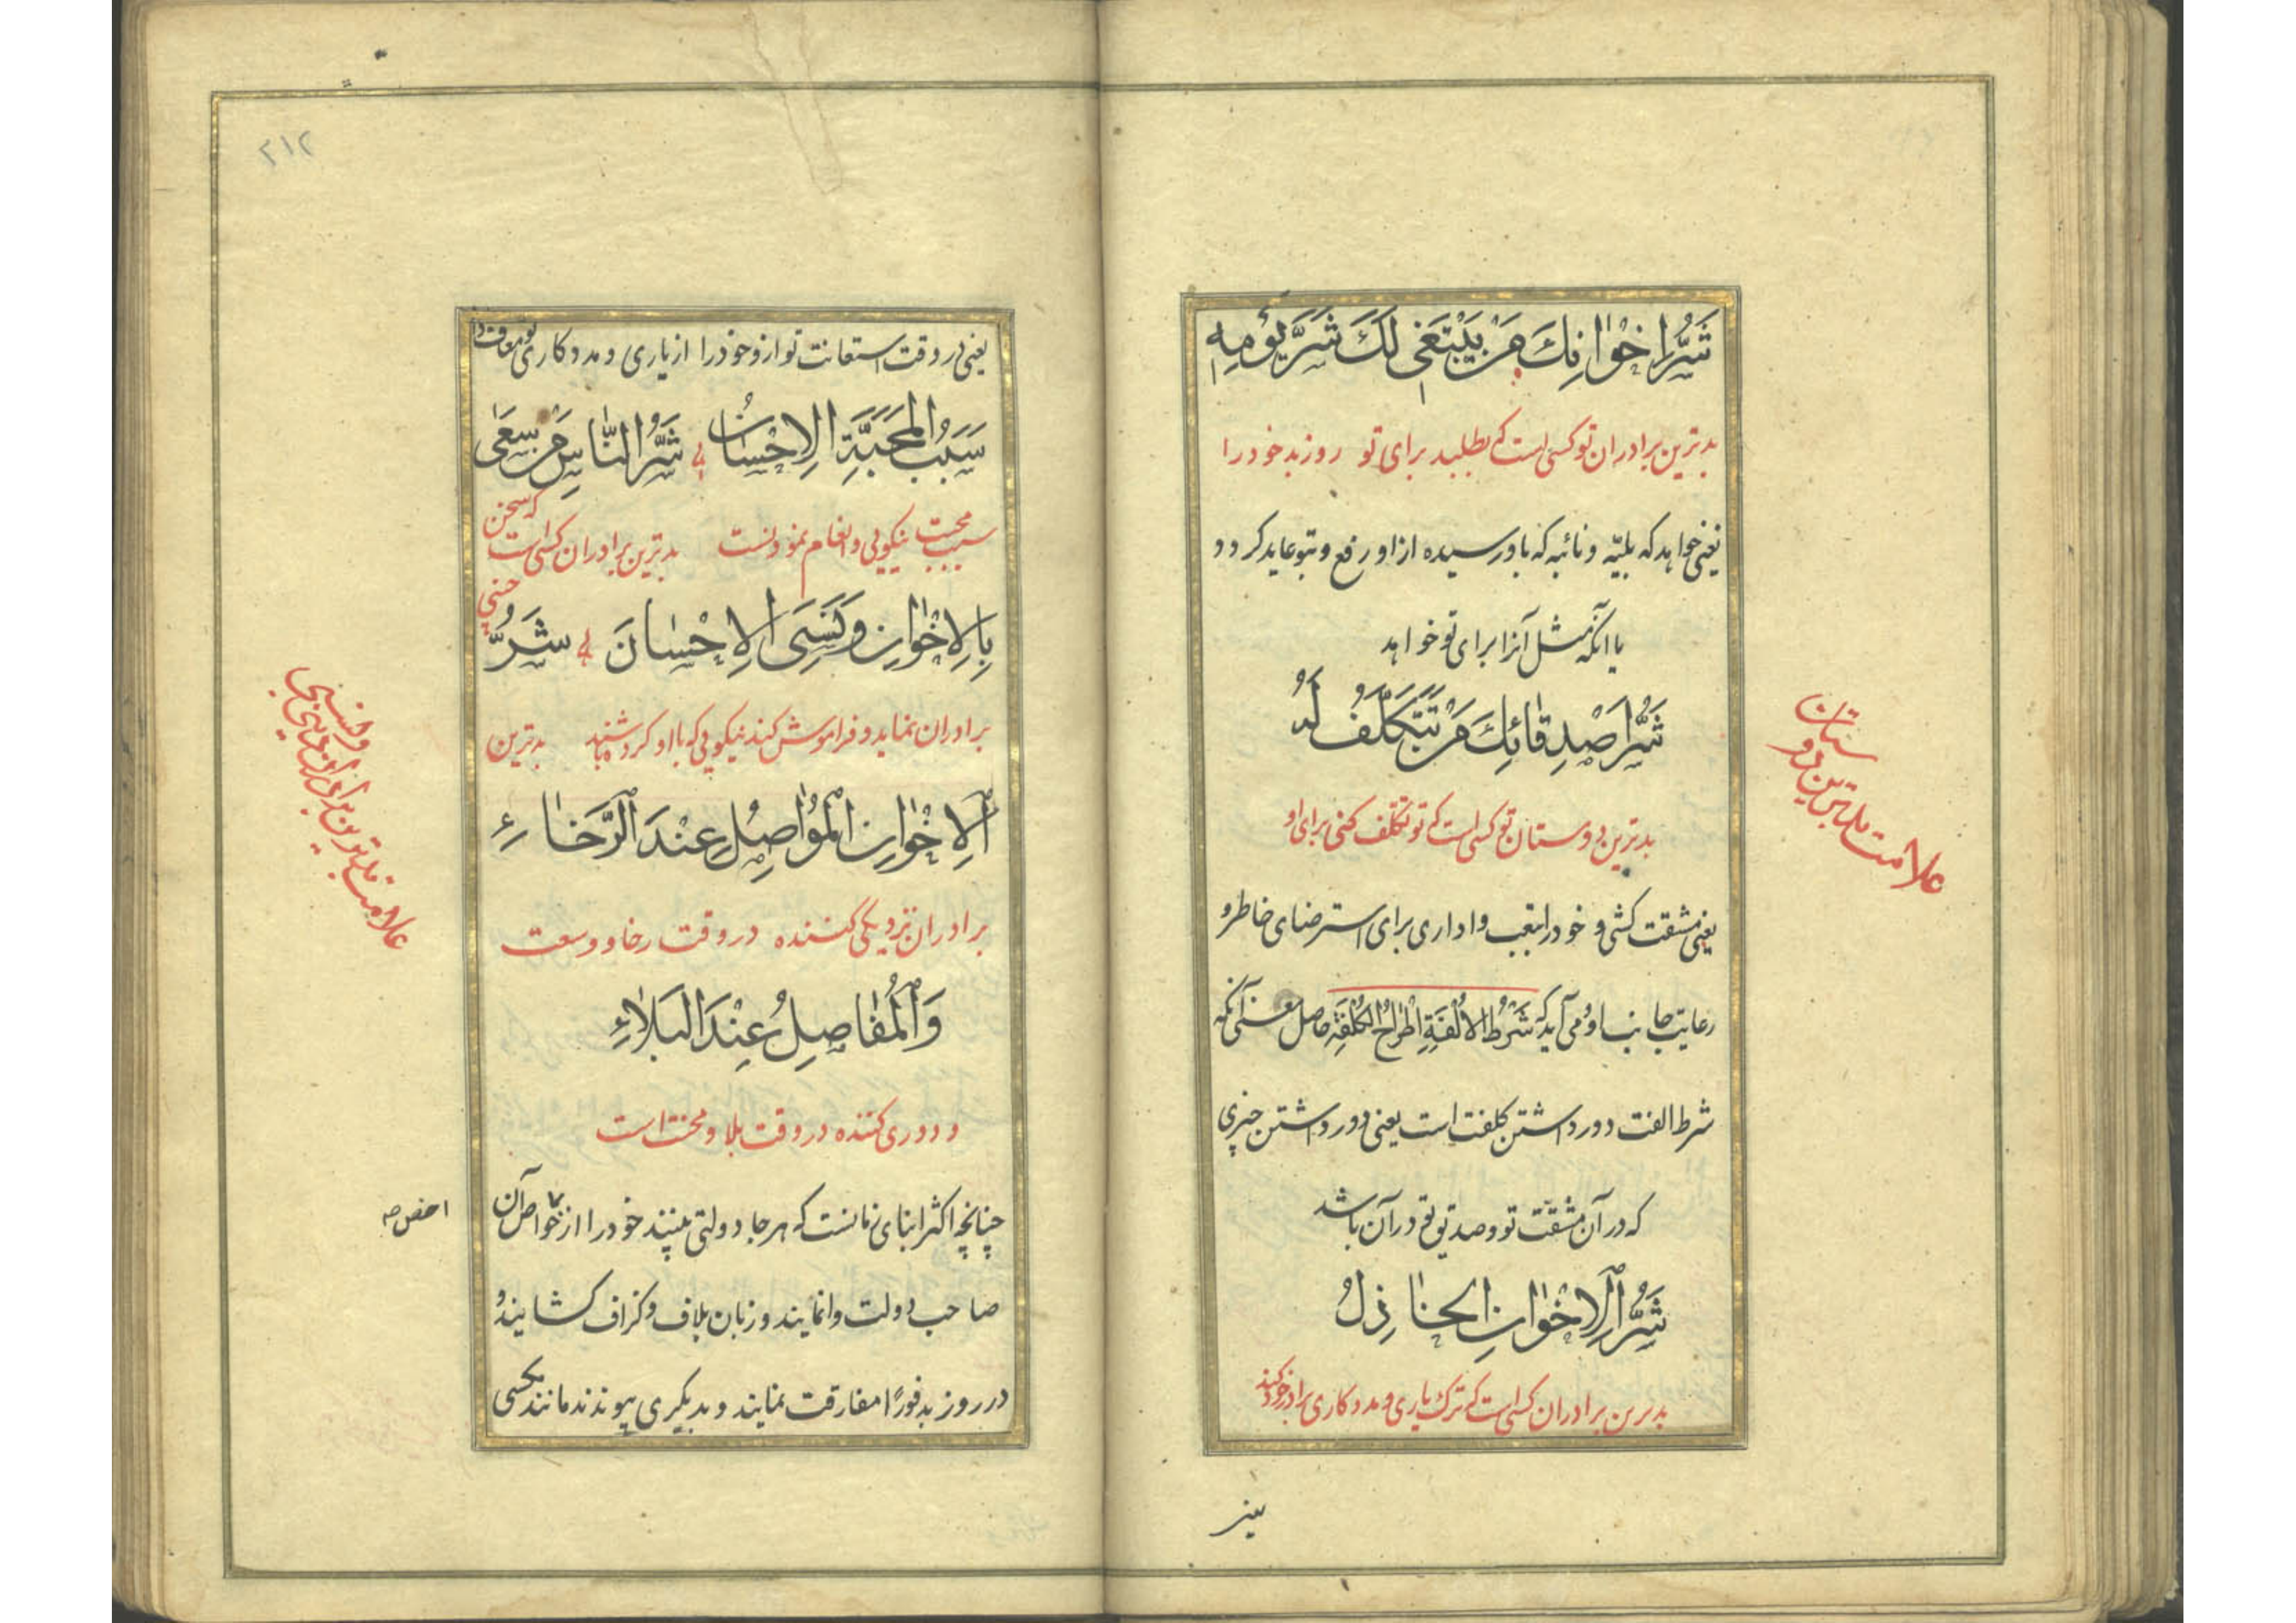 شَرُّ اِخْوٰانِكَ مَنْ يَبْتَغى لَكَ شَرَّ يَوْمِهِ
بدترین برادران تو کسی است که بطلبد برای تو روز بد خود را
یعنی خواهد که بلیّه و نائبه که باو رسیده از او رفع و بتو عاید کردد و
یا آنکه مثل آنرا برای تو خواهد
شَرُّ اَصْدِقٰائِكَ مَنْ تَتَكَلَّفُ لَهُ
بدترین دوستان تو کسی است که تو تکلف کنی برای او
یعنی مشقت کشی و خود را بتعب واداری برای استرضای خاطر و
رعایت جانب او و می آید که شَرْطُ الاُلْفَةِ اطْراحُ الكُلْفَةِ حاصل معنی آنکه
شرط الفت دور داشتن کلفت است یعنی دور داشتن چیزی
که در آن مشقت تو و صدیق تو در آن باشد
شَرُّ الاِخْوٰانِ الخٰاذِلُ
بدترین برادران کسی است که ترک یاری و مددکاری برادر خود کند
یعنی
علامت بدترین دوستان
۲۱۲
یعنی در وقت استعانت تو از و خود را از یاری و مددکاری تو معاف دارد
سَبَبُ المَحَبَّةِ الاِحْسٰانُ شَرُّ النّٰاسِ مَنْ سَعٰى
سبب محبت نیکویی و انعام نمودنست بدترین برادران کسی است که سخن چینی
بِالاِخْوٰانِ وَ نَسِىَ الاِحْسٰانَ شَرُّ
برادران نماید و فراموش کند نیکویی که با او کرده باشند بدترین
الاِخْوٰانِ المُوٰاصِلُ عِنْدَ الرَّخٰاءِ
برادران نزدیکی کننده در وقت رخا و وسعت
وَ المُفٰاصِلُ عِنْدَ البَلٰاءِ
و دوری کننده در وقت بلا و محنت است
چنانچه اکثر ابنای زمانست که هر جا دولتی بینند خود را از خواص آن
صاحب دولت وانمایند و زبان بلاف و کزاف کشایند و
در روز بد فوراً مفارقت نمایند و بدیکری پیوندند مانند مکسی
علامت بدترین برادران
اخص صه